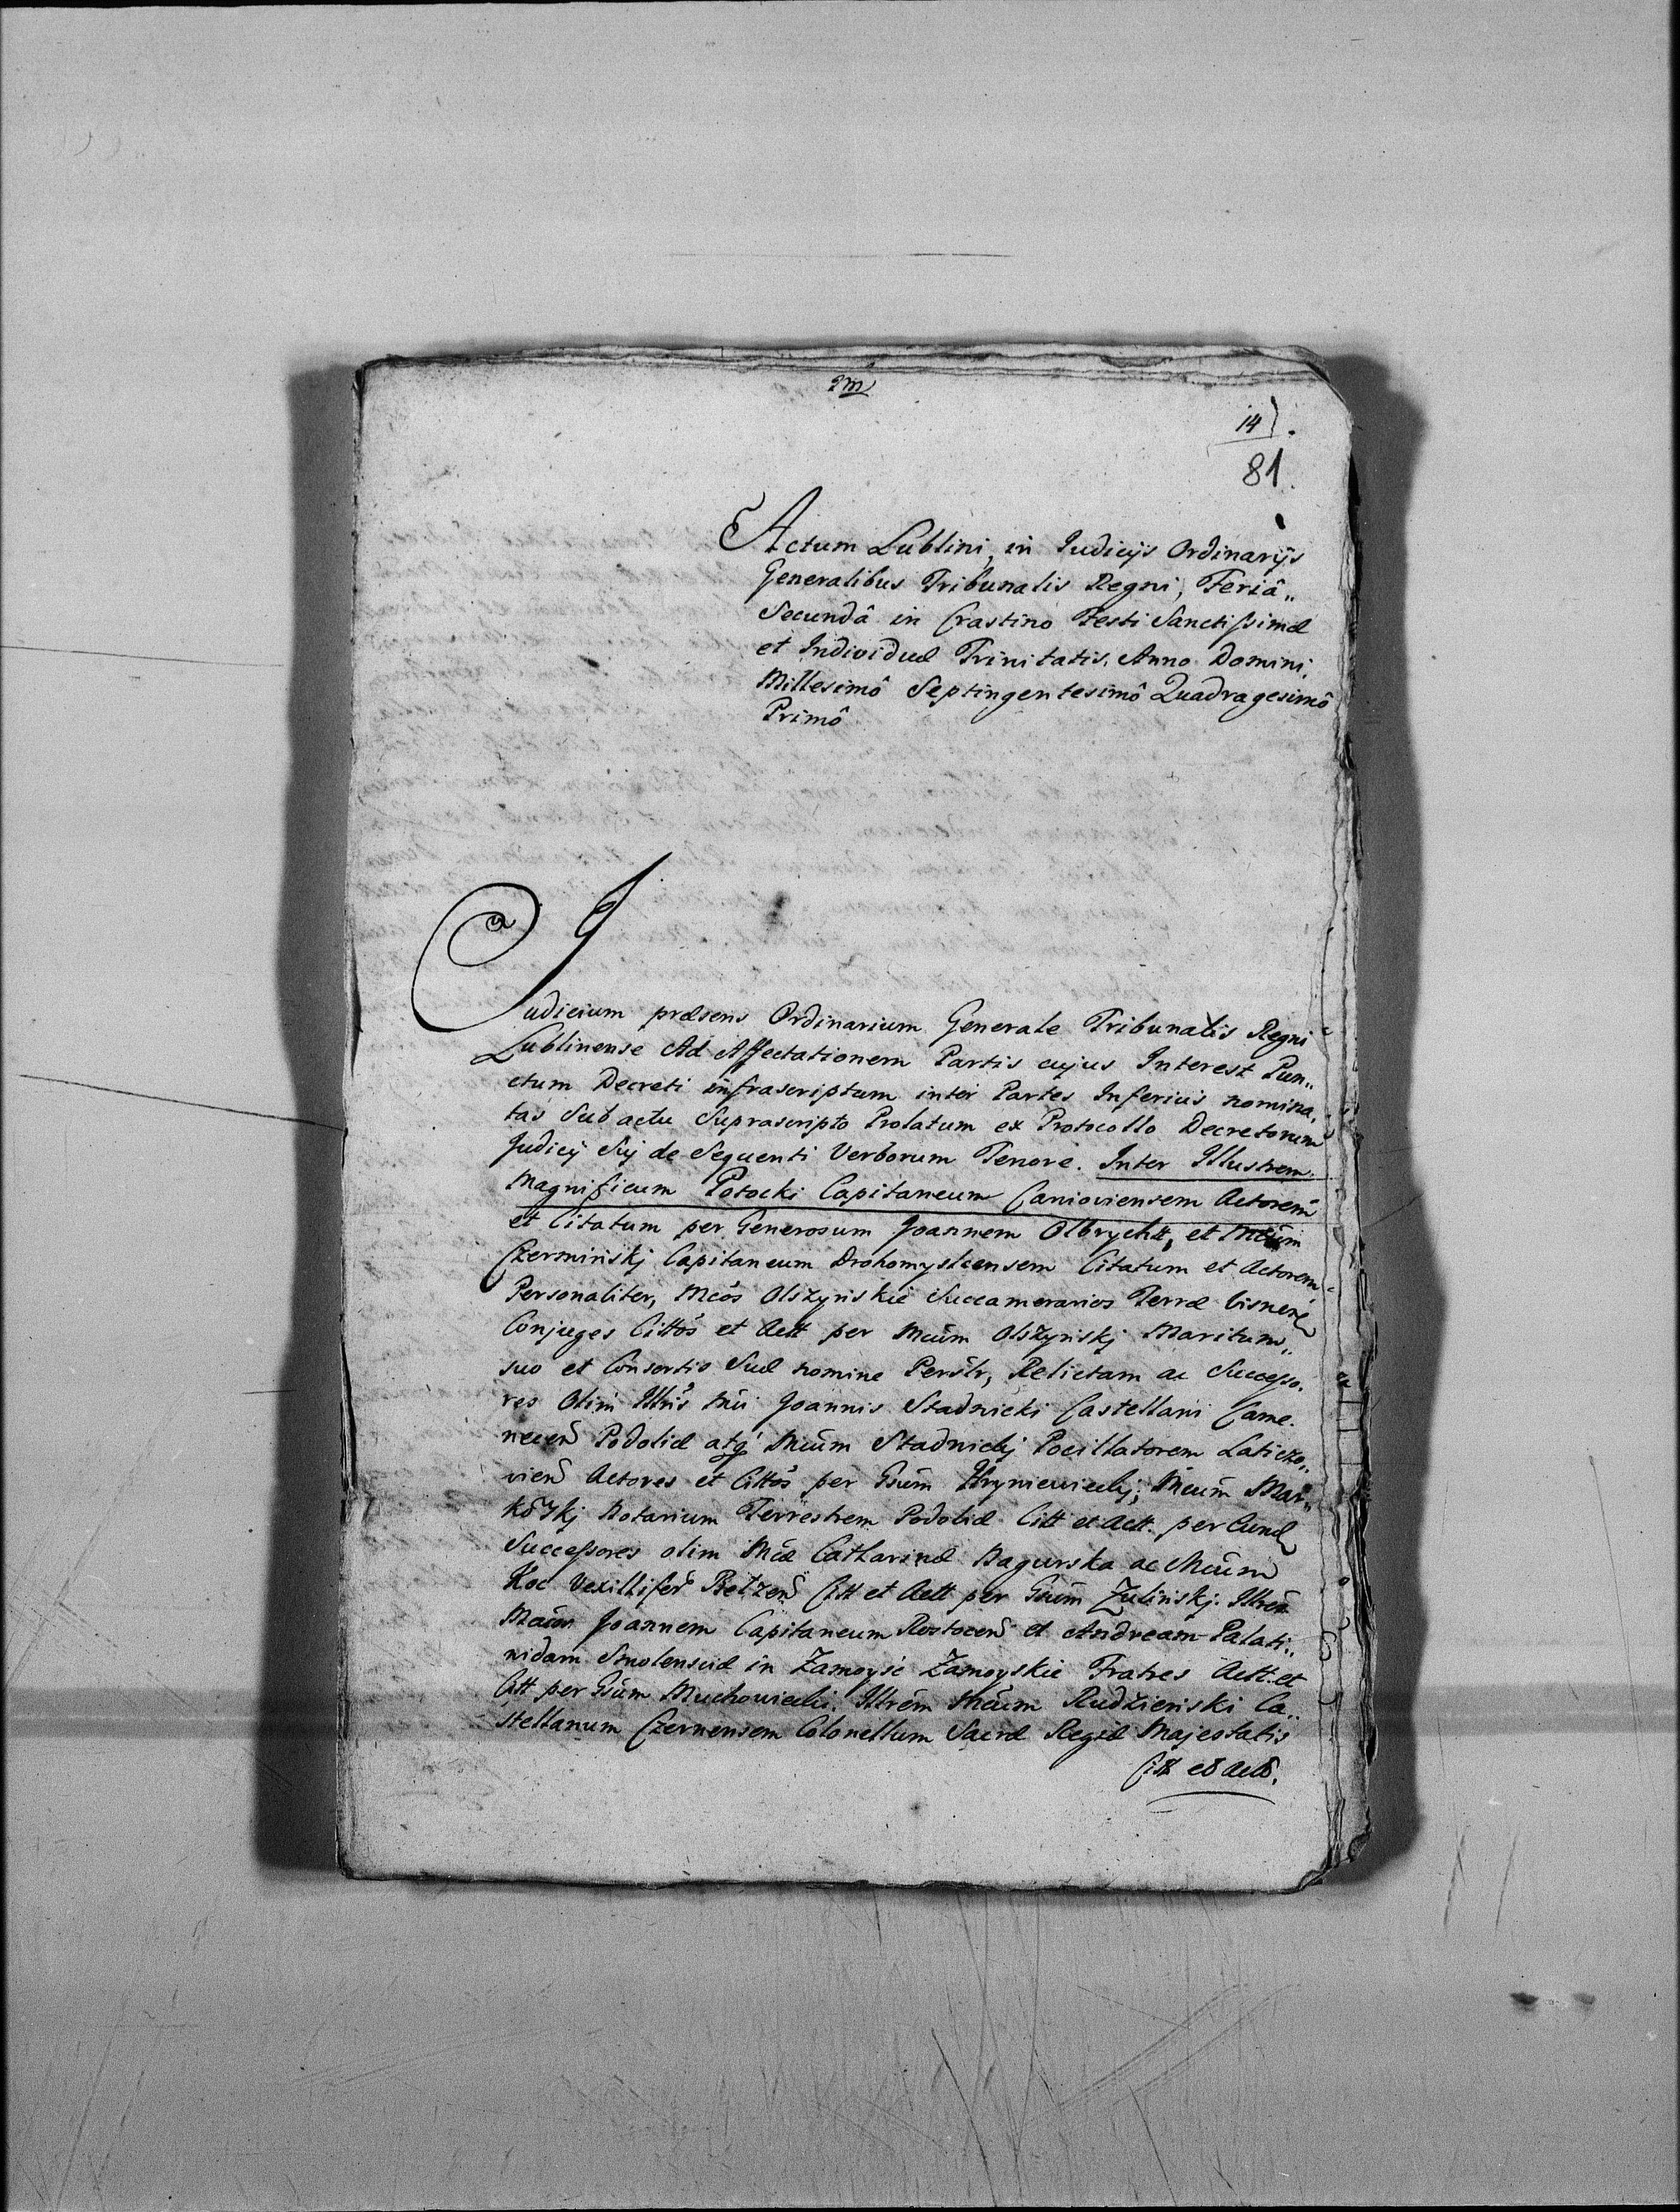 14
81.
Actum Lublini, in Judicijs Ordinarijs
Generalibus Tribunalis Regni, Feriâ„
Secundâ in Crastino Festi Sanctissimæ
et Individuæ Trinitatis. Anno Domini
Millesimô Septingentesimô Quadragesimô
Primô
Judicium præsens Ordinarium Generale Tribunalis Regni
Lublinense Ad Affectationem Partis cujus Interest Pun„
ctum Decreti infrascriptum inter Partes Inferius nomina„
tas Sub actu Suprascripto Prolatum ex Protocollo Decretorum
Judicij Sij de Sequenti Verborum Tenore. Inter Illustrem
Magnificum Potocki Capitaneum Canioviensem Actorem
et Citatum per Generosum Joannem Olbrycht, et Mcum
Czerminskj Capitaneum Drohomyslcensem Citatum et Actorem
Personaliter, Mcos Olszynskie Succamerarios Terræ
Conjuges Cittos et Actt per Mcum Olszynskj Maritum„
suo et Consortis Suæ nomine Perslr, Relictam ac Successo„
res Olim Illris Mci Joannis Stadnicki Castellani Came„
necen Podoliæ atq Mcum Stadnickj Pocillatorem Laticzo„
vien Actores et Cittos per Gsum Hryniewieckj, Mcum Mar„
Notarium Terrestrem Podoliæ Citt et Actt. per Eund
Successores olim Mcæ Catharinæ Nagurska ac Mcum
Koc Vexillifer Belzen Citt et Actt per Gsum Zulinskj. Illrem
Mcum Joannem Capitaneum Rostocen et Andream Palati„
nidam Smolensciæ in Zamoysc Zamoyskie Fratres Actt et
Citt per Gsum Muchowiecki. Illrem Mcum Rudzienski Ca„
stellanum Czernensem Colonellum Sacræ Regiæ Majestatis
Citt et Actt.